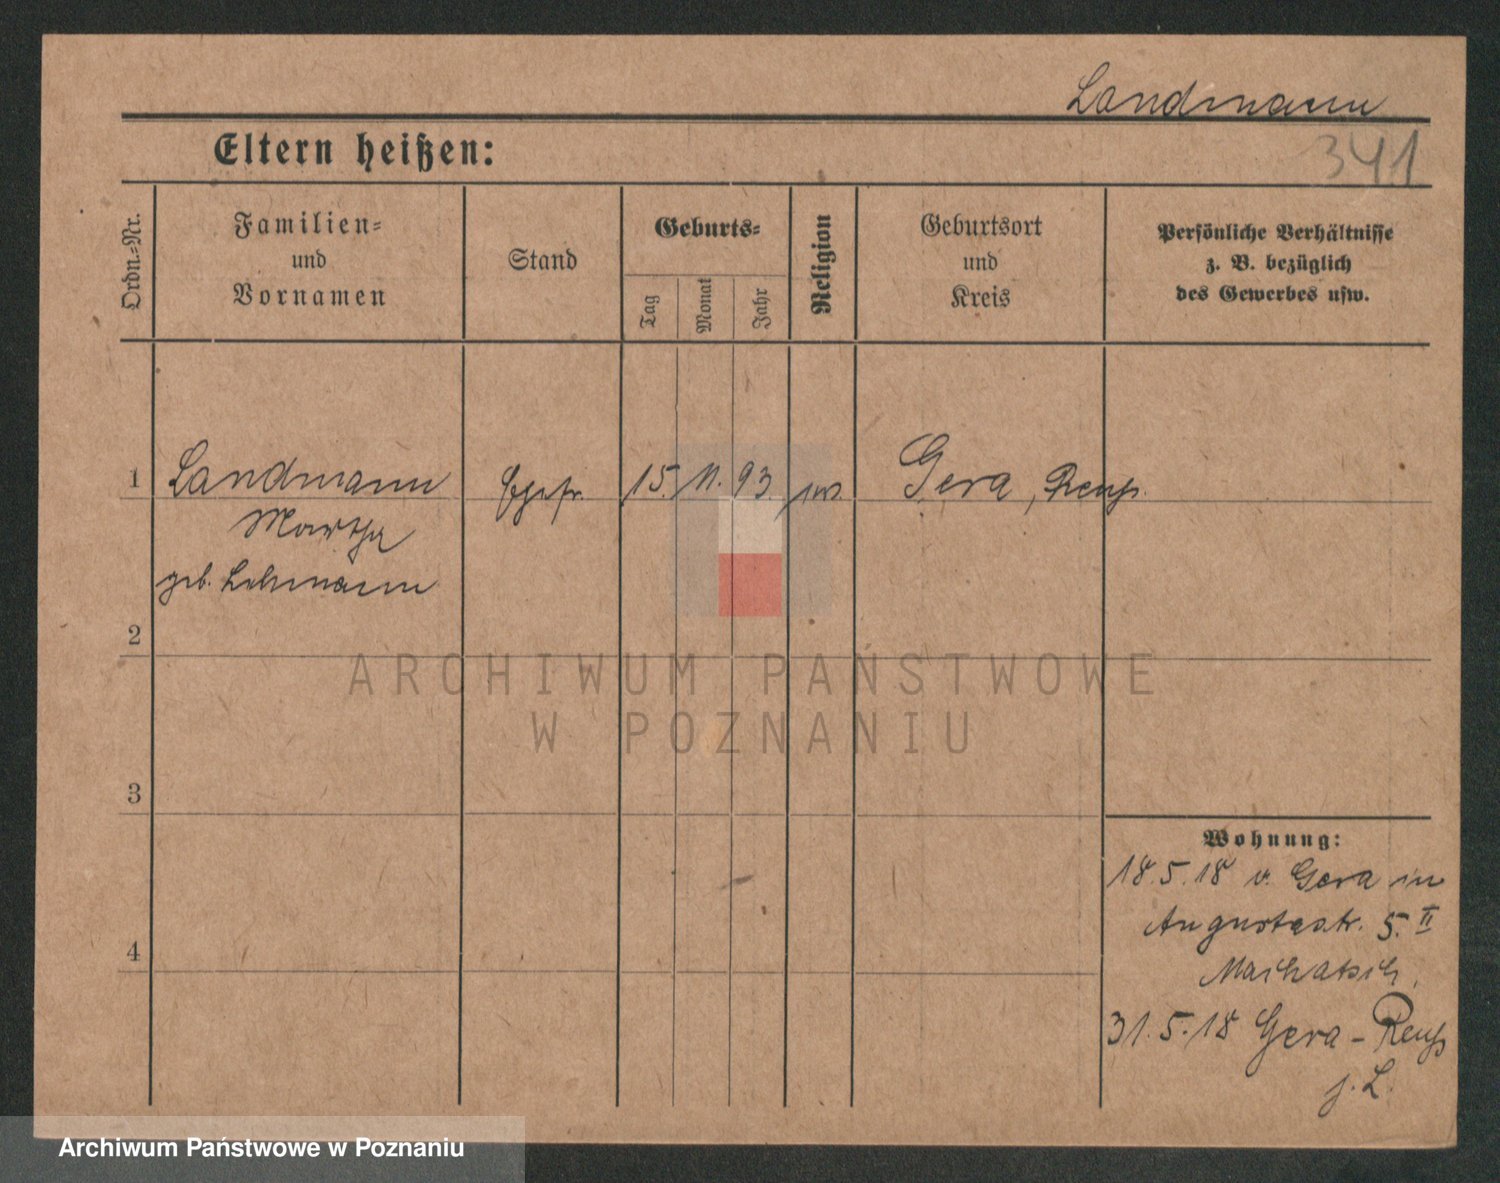 Landmann
341
Eltern heißen:
Ordn.-Nr.
Familien-
und
Vornamen
Stand
Geburts-
Tag
Monat
Jahr
Religion
Geburtsort
und
Kreis
Persönliche Verhältnisse
z. B. bezüglich
des Gewerbes usw.
1 Landmann Ehefr. 15. 11. 93. Gera, Reuß.
Martha
geb. Lehmann
2
3
4
Wohnung:
18.5.18 v. Gera in
Augustastr. 5. II
31.5.18 Gera - Reuß
j. L.
ARCHIWUM PAŃSTWOWE
W POZNANIU
Archiwum Państwowe w Poznaniu